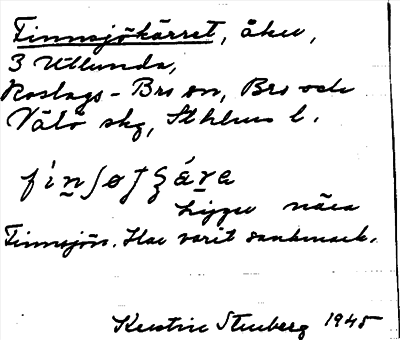 Finnsjökärret, åker,
3 Utlunda,
Roslags-Bro sn, Bro och
Vätö skg, Sthlms l.
Ligger nära
Finnsjön. Har varit sankmark.
Kerstin Stenberg 1945